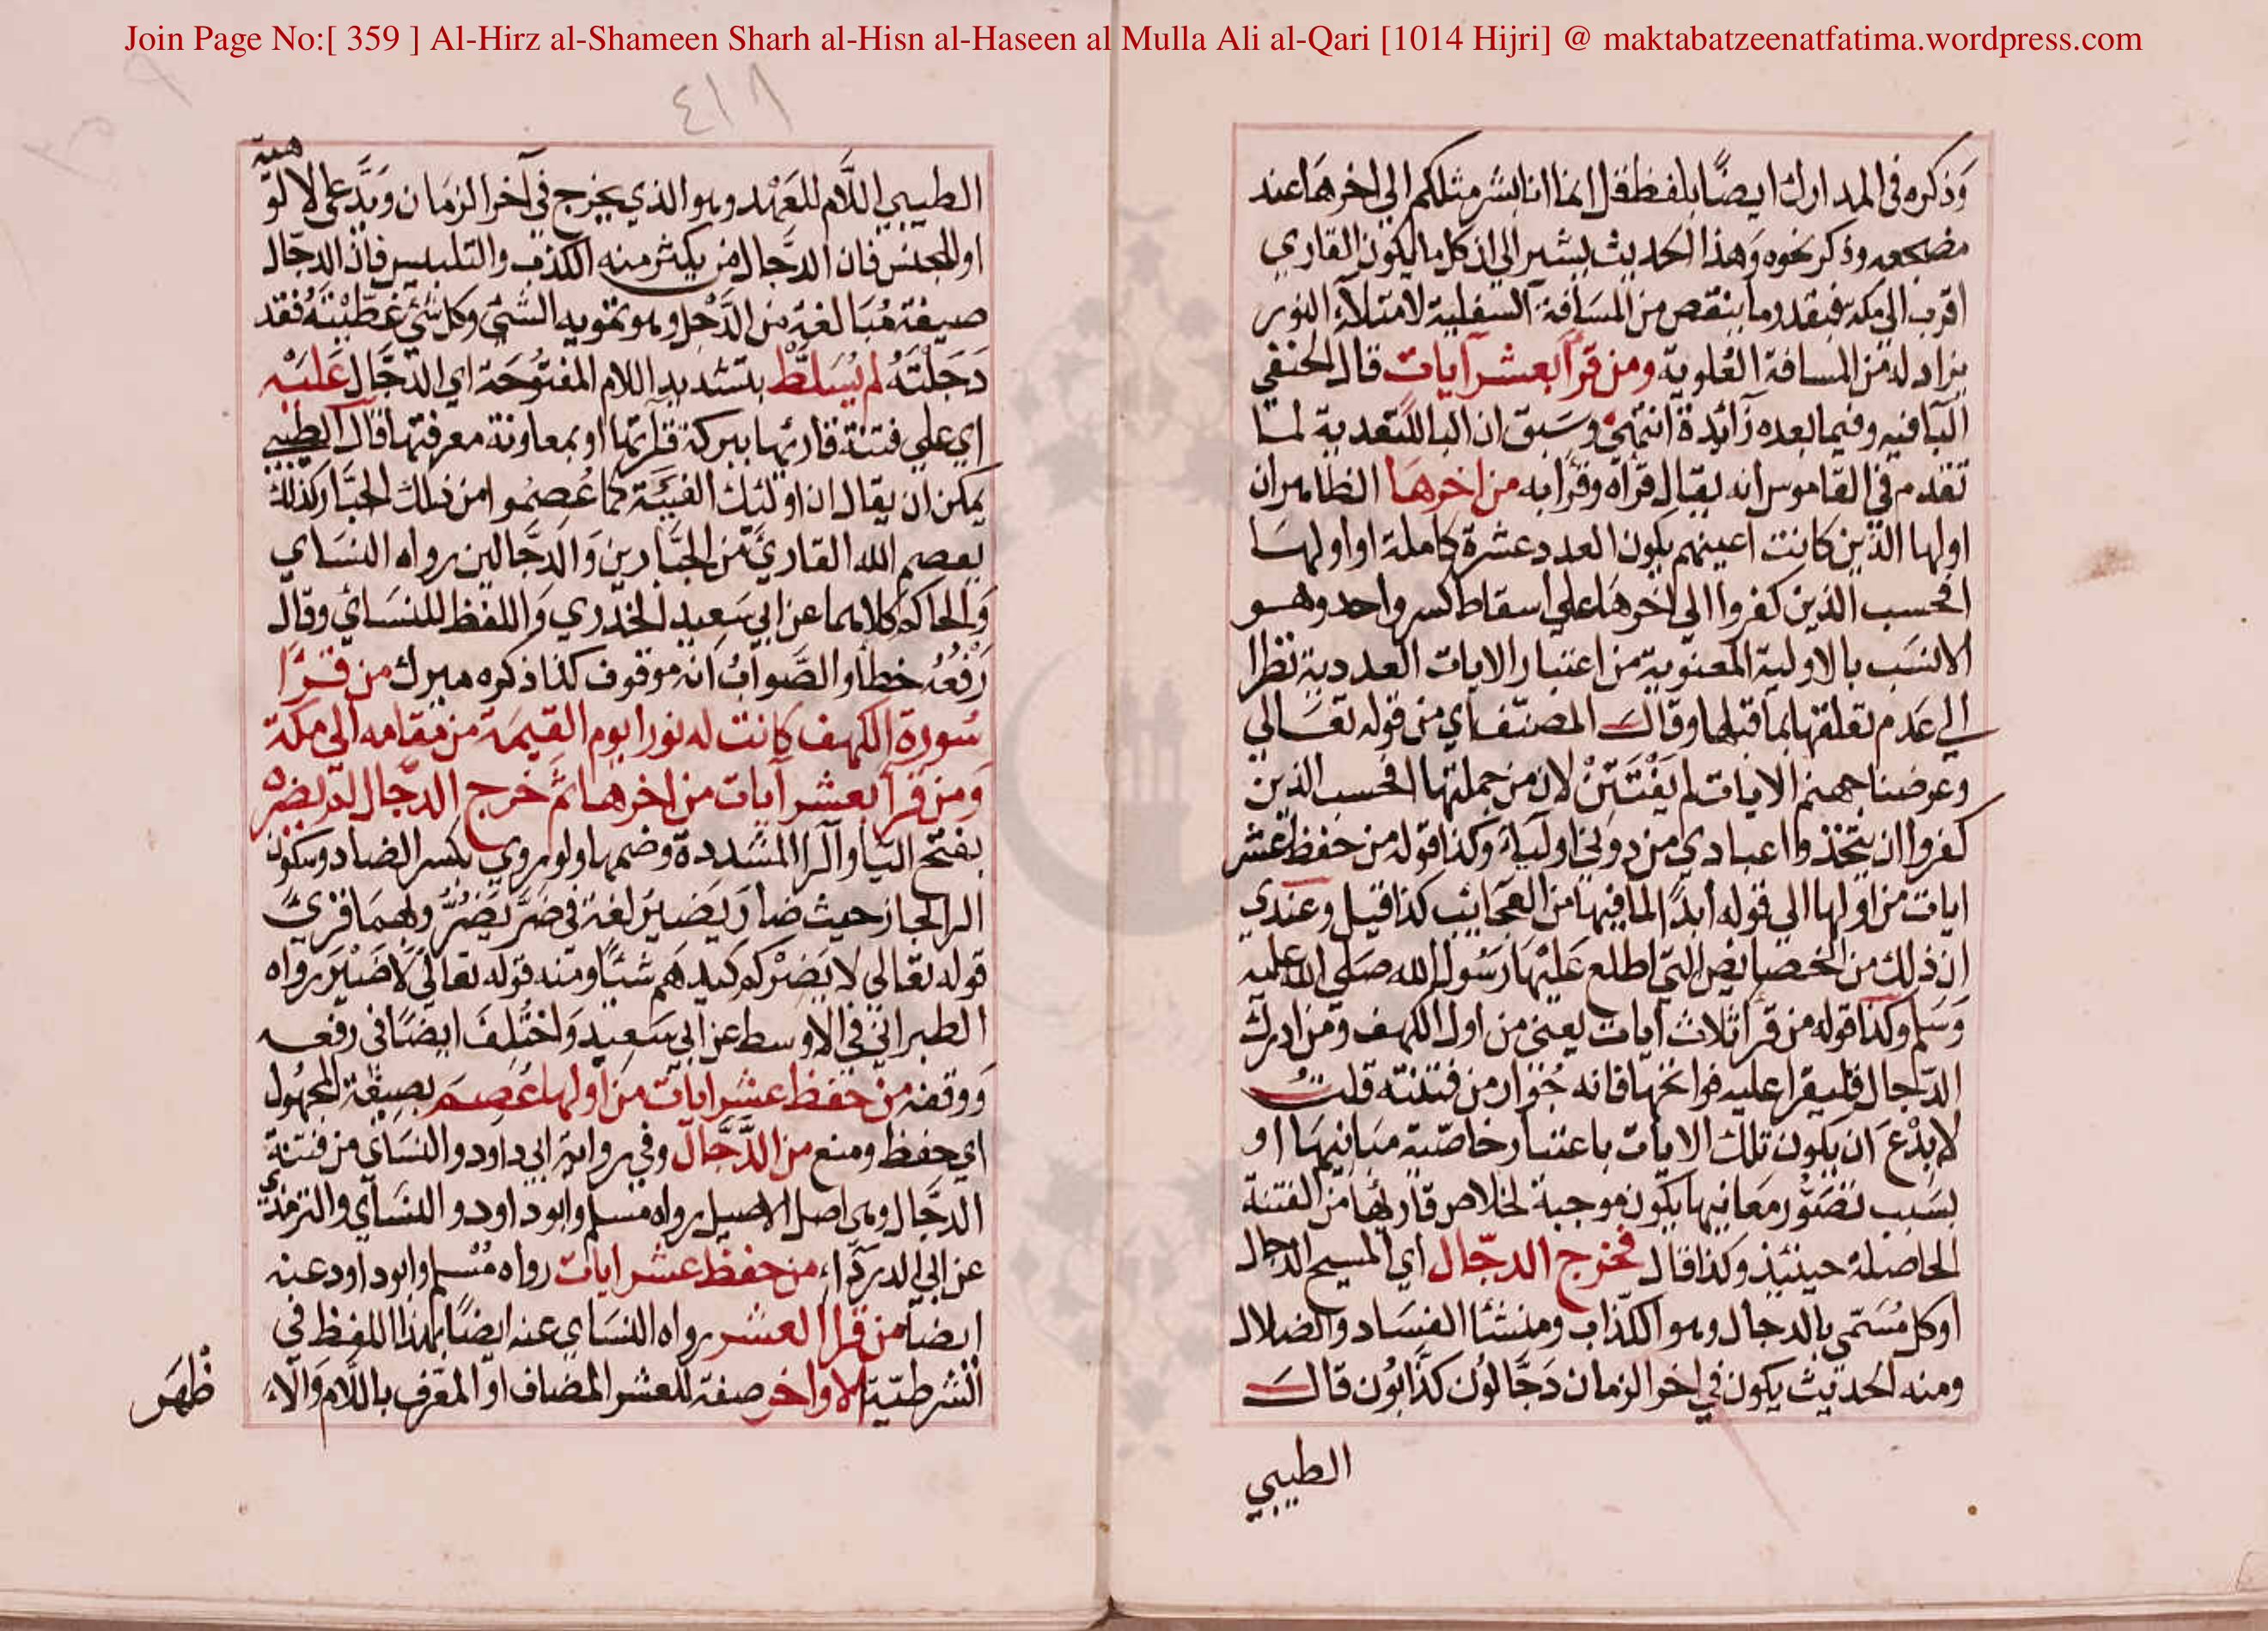 Join Page No:[ 359 ] Al-Hirz al-Shameen Sharh al-Hisn al-Haseen al Mulla Ali al-Qari [1014 Hijri] @ maktabatzeenatfatima.wordpress.com
وَذكره في المدارك ايضًا بلفظ قل انما انا بشر مثلكم الي اخرهَا عند
مضجعه وذكر نحوه وَهذا الحديث يشير الي ان كل ما يكون القاري
اقرب الي مكة فبقدر ما ينقص من المسَافة السفلية لامتلآء النور
يزاد له من المسافة العُلوية ومن قرأ بعشر آيات قال الحنفي
البَا فيه وفيما بعده زائدة انتهيٰ وسَبق ان البا للتعدية لما
تقدم في القاموس انه يقال قرأه وقرأ به من اخرهَا الظاهر ان
اولها الذين كانت اعينهم يكون العدد عشرة كاملة او اولهَا
افحسب الذين كفروا الي اخرهَا علي اسقاط كسر واحد وهو
الانسَب بالاولية المعنوية من اعتبار الايات العددية نظرا
الي عَدم تعلقها بما قبلها وقال المصنّف اي من قوله تعَالي
وعرضنا جهنم الايات لم يَفْتَتِنْ لان من جملتها افحسب الذين
كفروا ان يتخذوا عبادي من دوني اوليآء وكذا قوله من حفظ عشر
ايات من اولها الي قوله ابدًا لما فيها من العجائب كذا قيل وعندي
ان ذلك من الخصايص التي اطلع عَليْهَا رَسُول الله صَلي الله عليه
وَسَلم وكذا قوله من قرأ ثلاث ايات يعني من اول الكهف ومن ادرك
الدّجال فليقرا عليه فواتحها فانه جُوَار من فتنته قلتُ
لا بِدْعَ ان يكون تلك الايات باعتبار خاصّية مبَانيهَا او
بسَبب تصَوُّر مَعَانيها يكون موجبة لخلاص قاريها من الفتنة
الحاصلة حينئذٍ وكذا قال فخرج الدجّال اي المسيح الدجال
او كل مُسَمّي بالدجال وهو الكذاب ومنشأ الفسَاد والضلال
ومنه الحديث يكون في اخر الزمان دَجَّالون كذّابُون قال
الطيبي
٤١٨
الطيبي اللَّام للعَهْد وهو الذي يخرج في آخر الزمَان ويَدَّعي الالوّ
هيّة
او للجنس فان الدَّجال من يكثر منه الكذب والتلبيس فان الدجّال
صيغة مُبَالغة من الدَّجْل وهو تمويه الشئ وكل شئ غَطّيْتَهُ فقد
دَجَلْتَهُ لم يُسَلَّطْ بتشديد اللام المفتوحَة اي الدجَّال عَليْه
اي علي فتنة قاريها ببركة قرأتها او بمعاونة معرفتها قال الطيبي
يمكن ان يقال ان اولئك الفتية كما عُصِمُوا من ذلك الجبّار كذلك
يعصم الله القاريَ من الجبّارين وَالدجّالين رواه النسَاي
وَالحاكم كلاهما عن ابي سَعِيد الخدري وَاللفظ للنسَائي وقال
رَفْعُهُ خطأ والصَّوابُ انه موقوف كذا ذكره ميرك من قرأ
سُورة الكهف كانت له نورا يوم القيمَة من مقامه الي مكة
وَمن قرأ بعشر ايات من اخرها ثم خرج الدجّال لم يضرّه
بفتح اليَا والرا المشددة وضمها ولو روي بكسر الضاد وسكون
الرا لجاز حيث ضارَ يَضيرُ لغة في ضرَّ يَضُرُّ وبهمَا قرئَ
قوله تعَالي لا يَضِرْكم كيدهم شيًا ومنه قوله تعَالي لَا ضَيْرَ رواه
الطبراني في الاوسط عن ابي سَعِيد وَاختُلِفَ ايضًا في رفعه
وَوقفه من حفظ عشر ايات من اولها عُصِمَ بصيغة المجهُول
اي حفظ ومنع من الدَّجَّال وفي رواية ابي داود والنسَاي من فتنة
الدجَّال وهي اصل الاصيل رواه مسلم وابو داود والنسَآي والترمذي
عن ابي الدردآء من حفظ عشر ايات رواه مُسْلم وابو داود عنه
ايضا من قرا العشر رواه النسَاي عنه ايضًا بهذا اللفظ في
الشرطيّة الاواخر صفة للعشر المضاف او المعَرّف باللّام وَالّا
ظَهَر